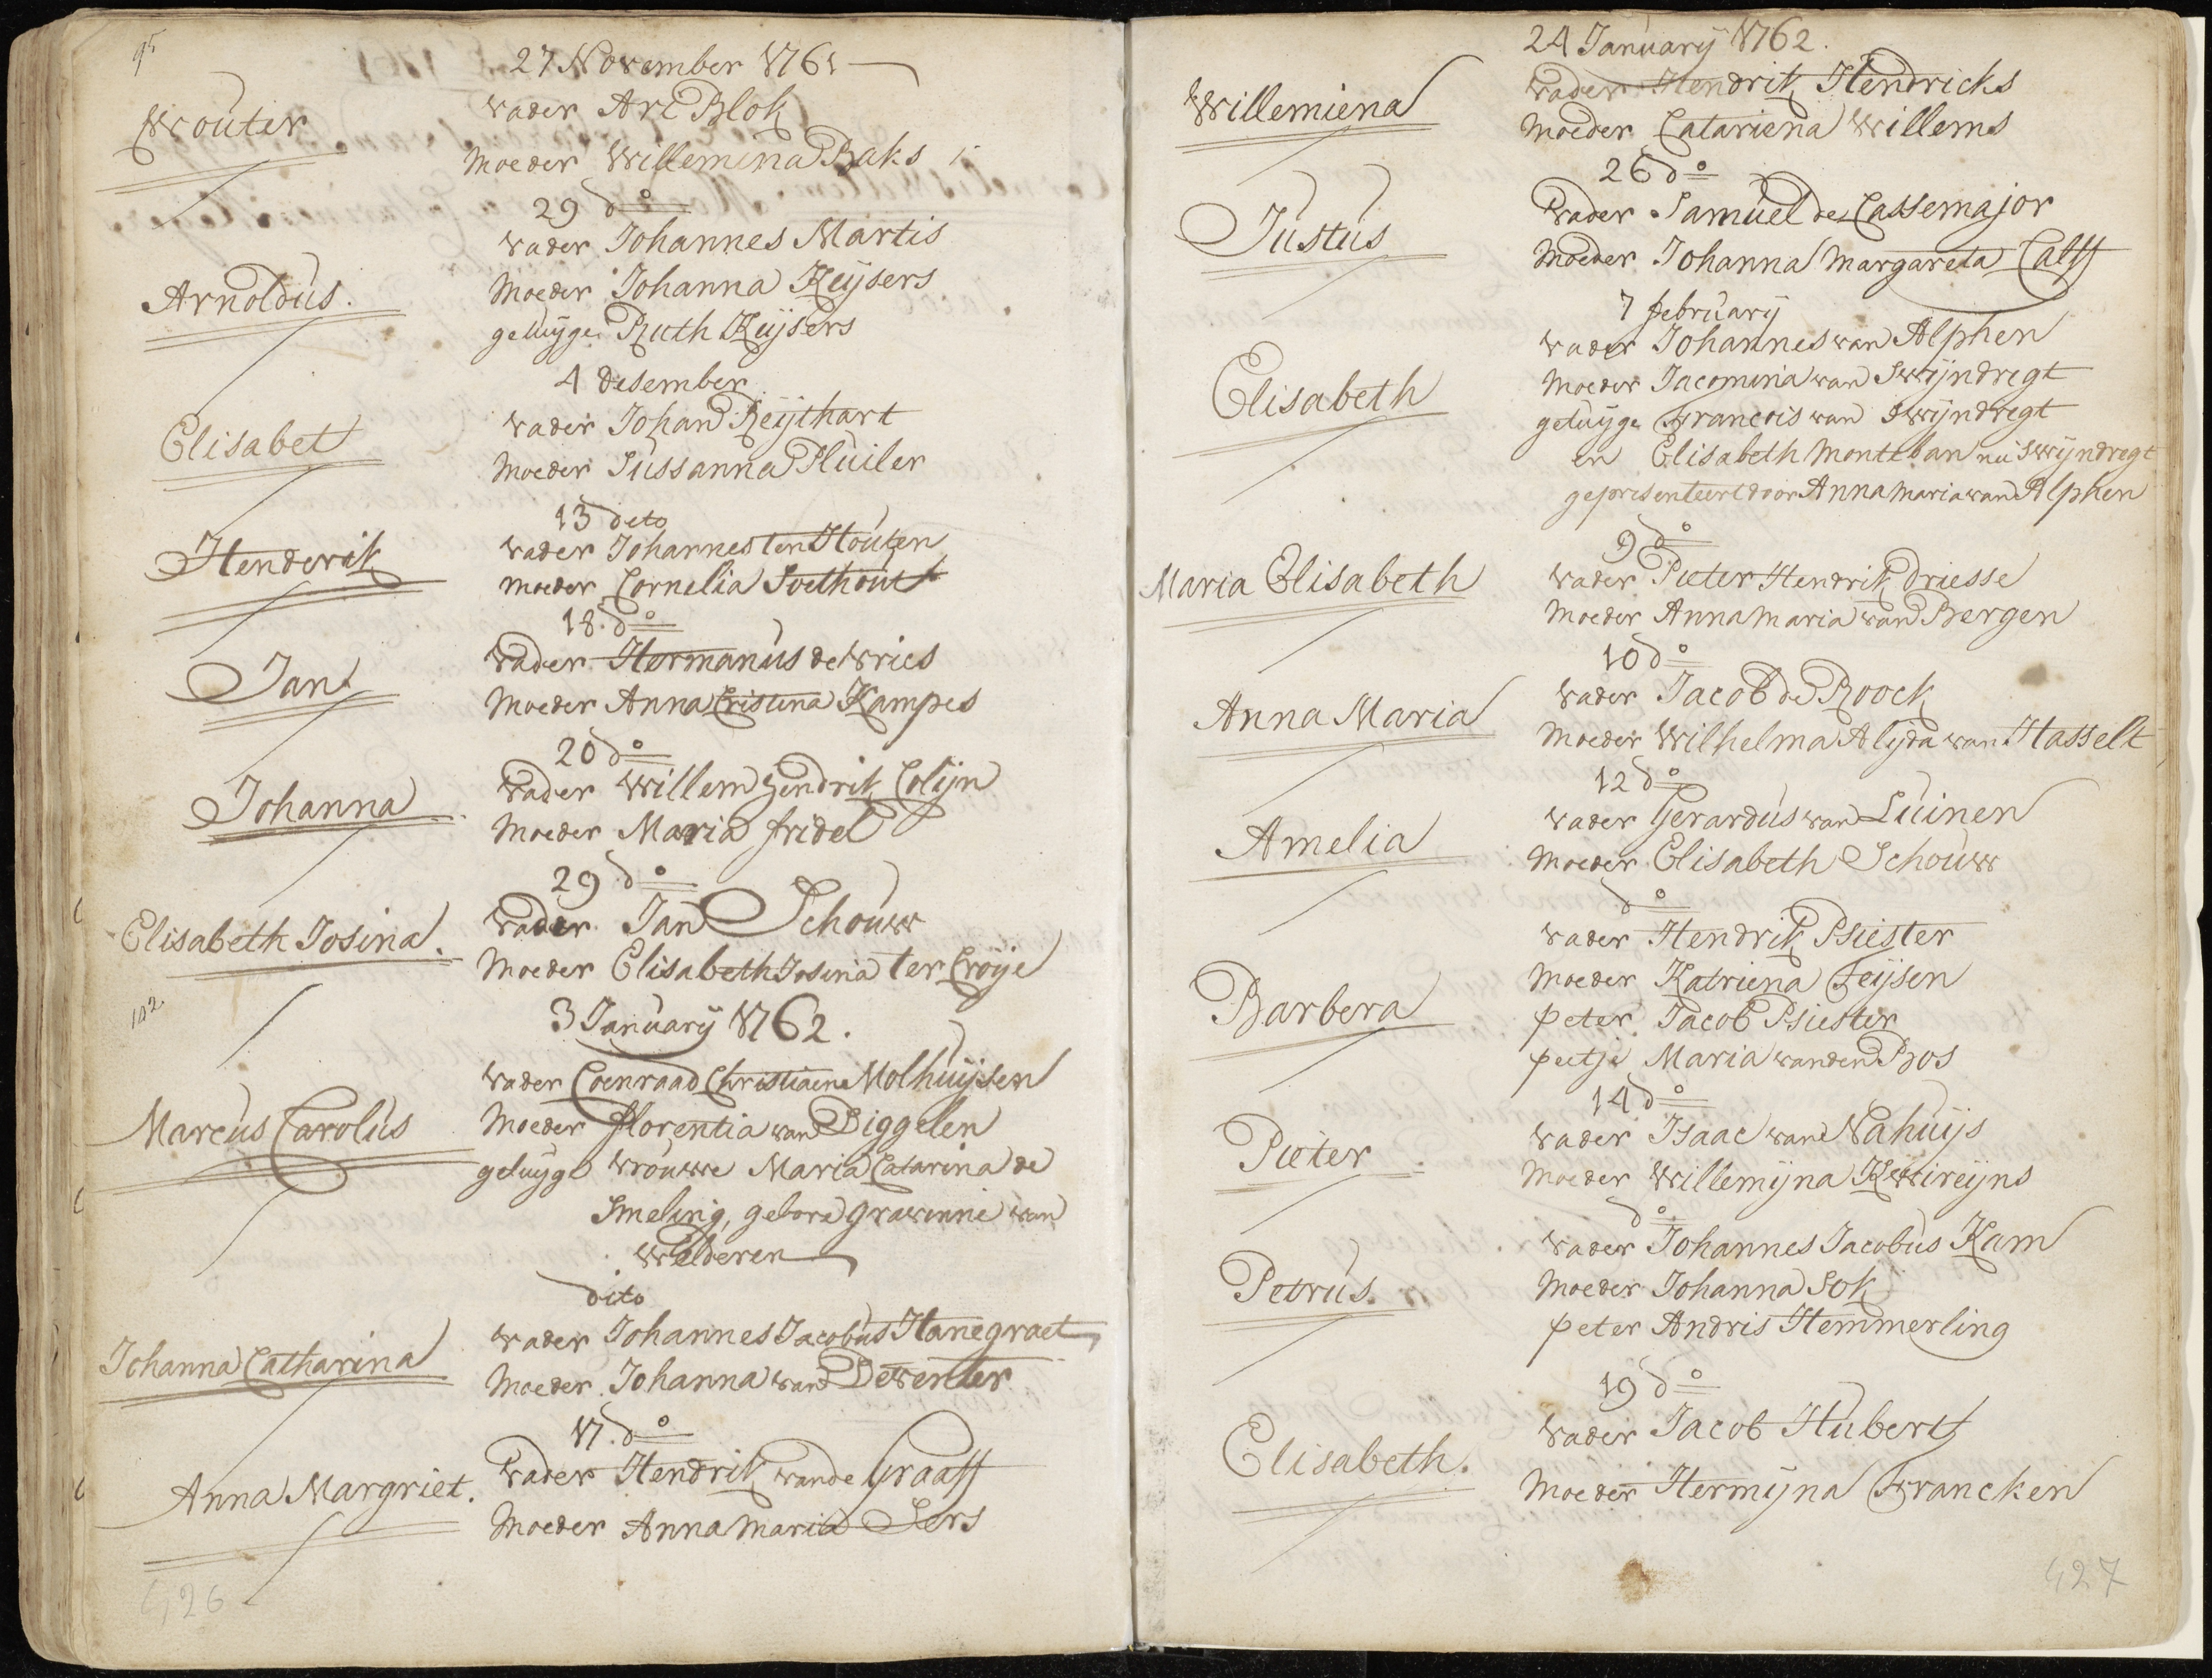 95
27 November 1761
Wouter
vader Ari Blok
Moeder Willemina Baks
29 do
vader Johannes Martis
Arnoldus.
Moeder Johanna Keijsers
getuijge Ruth Keijsers
4 desember
Elisabet
vader Johan Reijthart
Moeder Sussanna Pluiler
13 deto
Henderik
vader Johannes ten Houten
moeder Cornelia Soethout
18. do
Jan
vader Hermanus de Vries
Moeder Anna Cristina Kampes
20 do
Johanna
vader Willem Hendrik Colijn
Moeder Maria fridel
29 do
Elisabeth Josina.
vader Jan Schouw
Moeder Elisabeth Josina ter Croije
102
3 January 1762.
Marcus Carolus
vader Coenraad Christiaene Molhuijsen
Moeder florentia van Diggelen
getuyge vrouwe Maria Catarina de
Smeling, gebore gravinne van
Welderen
dito
Johanna Catharina
vader Johannes Jacobus Hanegraet
Moeder Johanna van Deventer
17. do
Anna Margriet.
vader Hendrik van de Graaff
Moeder Anna Maria Sers
426
24 January 1762.
Willemiena
vader Hendrik Hendricks
Moeder Catariena Willems
26 do
Justus
vader Samuel de Cassemajor
Moeder Johanna Margareta Calff
7 february
Elisabeth
vader Johannes van Alphen
Moeder Jacomina van Swijndregt
getuijge Francois van Swijndregt
en Elisabeth Monteban nu Swijndregt
gepresenteert door Anna Maria van Alphen
9 do
Maria Elisabeth
vader Pieter Hendrik Driesse
Moeder Anna Maria van Bergen
10 do
Anna Maria
vader Jacob de Roock
Moeder Wilhelma Alijda van Hasselt
12 do
Amelia
vader Gerardus van Luinen
Moeder Elisabeth Schouw
do
Barbera
vader Hendrik Psiester
Moeder Katriena Feijsen
peter Jacob Psiester
peetje Maria van den Bos
14 do
Pieter
vader Isaac van Nahuijs
Moeder Willemijna Kwireijns
do
Petrus.
vader Johannes Jacobus Kam
Moeder Johanna Sok
peter Andris Hemmerling
19 do
Elisabeth.
vader Jacob Hubert
Moeder Hermijna Francken
427